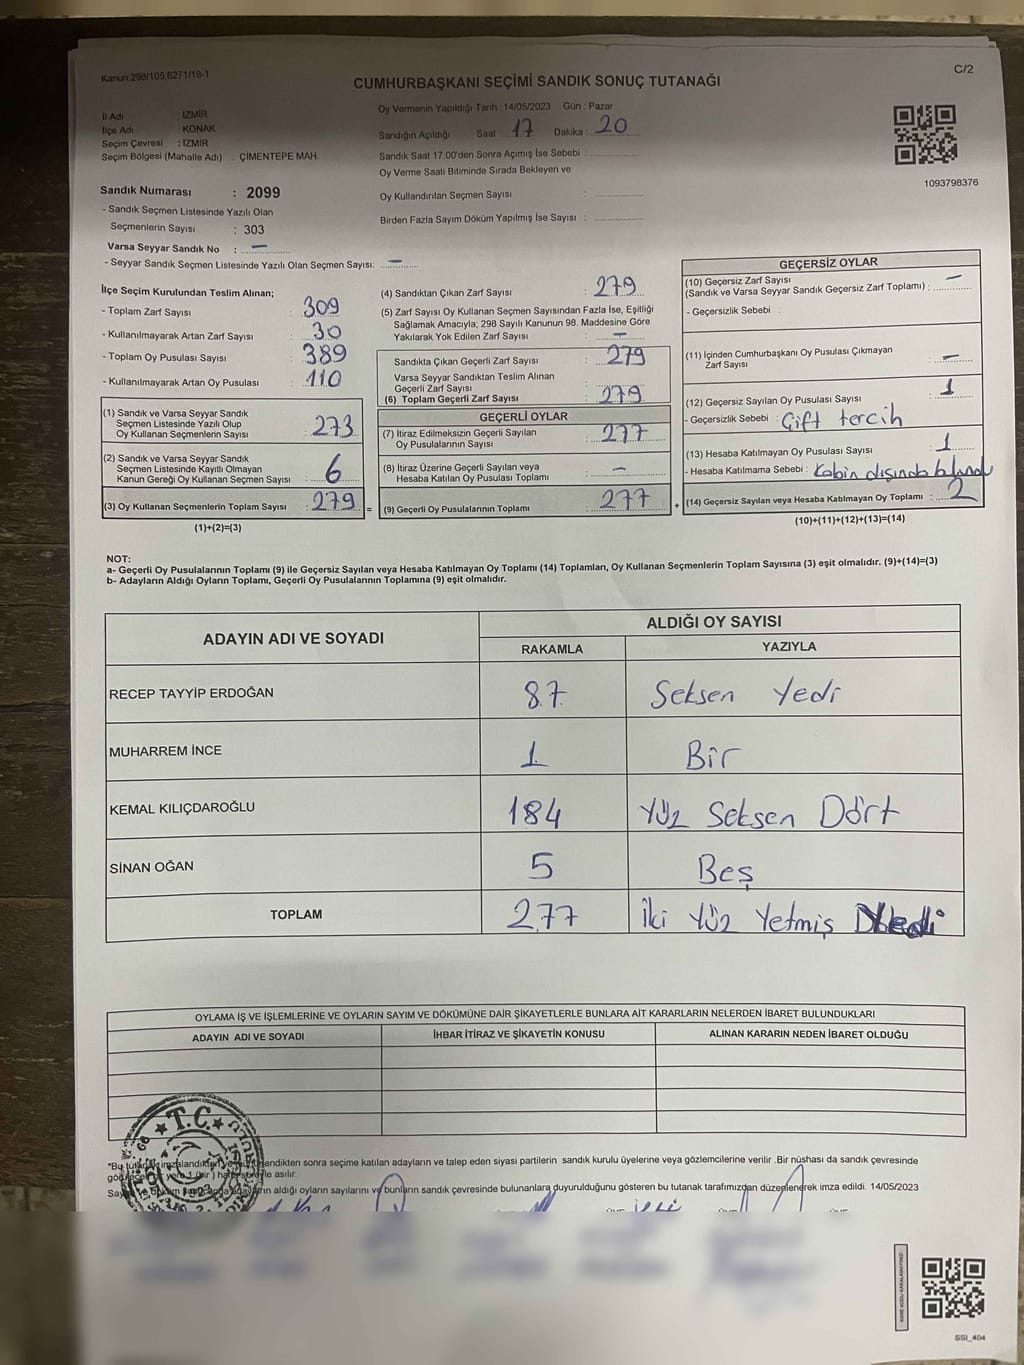 Kanun:298/105,6271/18-1
C/2
CUMHURBAŞKANI SEÇİMİ SANDIK SONUÇ TUTANAĞI
İl Adı İZMİR
İlçe Adı KONAK
Seçim Çevresi : İZMİR
Seçim Bölgesi (Mahalle Adı) : ÇİMENTEPE MAH.
Oy Vermenin Yapıldığı Tarih : 14/05/2023 Gün : Pazar
Sandığın Açıldığı Saat 17 Dakika : 20
Sandık Saat 17:00'den Sonra Açımış İse Sebebi :
Oy Verme Saati Bitiminde Sırada Bekleyen ve
Oy Kullandırılan Seçmen Sayısı :
Birden Fazla Sayım Döküm Yapılmış İse Sayısı :
1093798376
Sandık Numarası : 2099
- Sandık Seçmen Listesinde Yazılı Olan
Seçmenlerin Sayısı : 303
Varsa Seyyar Sandık No : —
- Seyyar Sandık Seçmen Listesinde Yazılı Olan Seçmen Sayısı: —
İlçe Seçim Kurulundan Teslim Alınan;
- Toplam Zarf Sayısı : 309
- Kullanılmayarak Artan Zarf Sayısı : 30
- Toplam Oy Pusulası Sayısı : 389
- Kullanılmayarak Artan Oy Pusulası : 110
(1) Sandık ve Varsa Seyyar Sandık
Seçmen Listesinde Yazılı Olup
Oy Kullanan Seçmenlerin Sayısı : 273
(2) Sandık ve Varsa Seyyar Sandık
Seçmen Listesinde Kayıtlı Olmayan
Kanun Gereği Oy Kullanan Seçmen Sayısı : 6
(3) Oy Kullanan Seçmenlerin Toplam Sayısı : 279 =
(1)+(2)=(3)
(4) Sandıktan Çıkan Zarf Sayısı : 279
(5) Zarf Sayısı Oy Kullanan Seçmen Sayısından Fazla İse, Eşitliği
Sağlamak Amacıyla; 298 Sayılı Kanunun 98. Maddesine Göre
Yakılarak Yok Edilen Zarf Sayısı : —
Sandıkta Çıkan Geçerli Zarf Sayısı : 279
Varsa Seyyar Sandıktan Teslim Alınan
Geçerli Zarf Sayısı :
(6) Toplam Geçerli Zarf Sayısı : 279
GEÇERLİ OYLAR
(7) İtiraz Edilmeksizin Geçerli Sayılan
Oy Pusulalarının Sayısı : 277
(8) İtiraz Üzerine Geçerli Sayılan veya
Hesaba Katılan Oy Pusulası Toplamı : —
(9) Geçerli Oy Pusulalarının Toplamı : 277 +
GEÇERSİZ OYLAR
(10) Geçersiz Zarf Sayısı
(Sandık ve Varsa Seyyar Sandık Geçersiz Zarf Toplamı) : —
- Geçersizlik Sebebi :
(11) İçinden Cumhurbaşkanı Oy Pusulası Çıkmayan
Zarf Sayısı : —
(12) Geçersiz Sayılan Oy Pusulası Sayısı : 1
- Geçersizlik Sebebi : Çift tercih
(13) Hesaba Katılmayan Oy Pusulası Sayısı : 1
- Hesaba Katılmama Sebebi : Kabin dışında bulundu
(14) Geçersiz Sayılan veya Hesaba Katılmayan Oy Toplamı : 2
(10)+(11)+(12)+(13)=(14)
NOT:
a- Geçerli Oy Pusulalarının Toplamı (9) ile Geçersiz Sayılan veya Hesaba Katılmayan Oy Toplamı (14) Toplamları, Oy Kullanan Seçmenlerin Toplam Sayısına (3) eşit olmalıdır. (9)+(14)=(3)
b- Adayların Aldığı Oyların Toplamı, Geçerli Oy Pusulalarının Toplamına (9) eşit olmalıdır.
ADAYIN ADI VE SOYADI
ALDIĞI OY SAYISI
RAKAMLA YAZIYLA
RECEP TAYYİP ERDOĞAN 87 Seksen Yedi
MUHARREM İNCE 1 Bir
KEMAL KILIÇDAROĞLU 184 Yüz Seksen Dört
SİNAN OĞAN 5 Beş
TOPLAM 277 İki Yüz Yetmiş
OYLAMA İŞ VE İŞLEMLERİNE VE OYLARIN SAYIM VE DÖKÜMÜNE DAİR ŞİKAYETLERLE BUNLARA AİT KARARLARIN NELERDEN İBARET BULUNDUKLARI
ADAYIN ADI VE SOYADI İHBAR İTİRAZ VE ŞİKAYETİN KONUSU ALINAN KARARIN NEDEN İBARET OLDUĞU
T.C.
*Bu sonra seçime katılan adayların ve talep eden siyasi partilerin sandık kurulu üyelerine veya gözlemcilerine verilir .Bir nüshası da sandık çevresinde
asılır.
aldığı oyların sayılarını ve bunların sandık çevresinde bulunanlara duyurulduğunu gösteren bu tutanak tarafımızdan düzenlenerek imza edildi. 14/05/2023
GSI_404